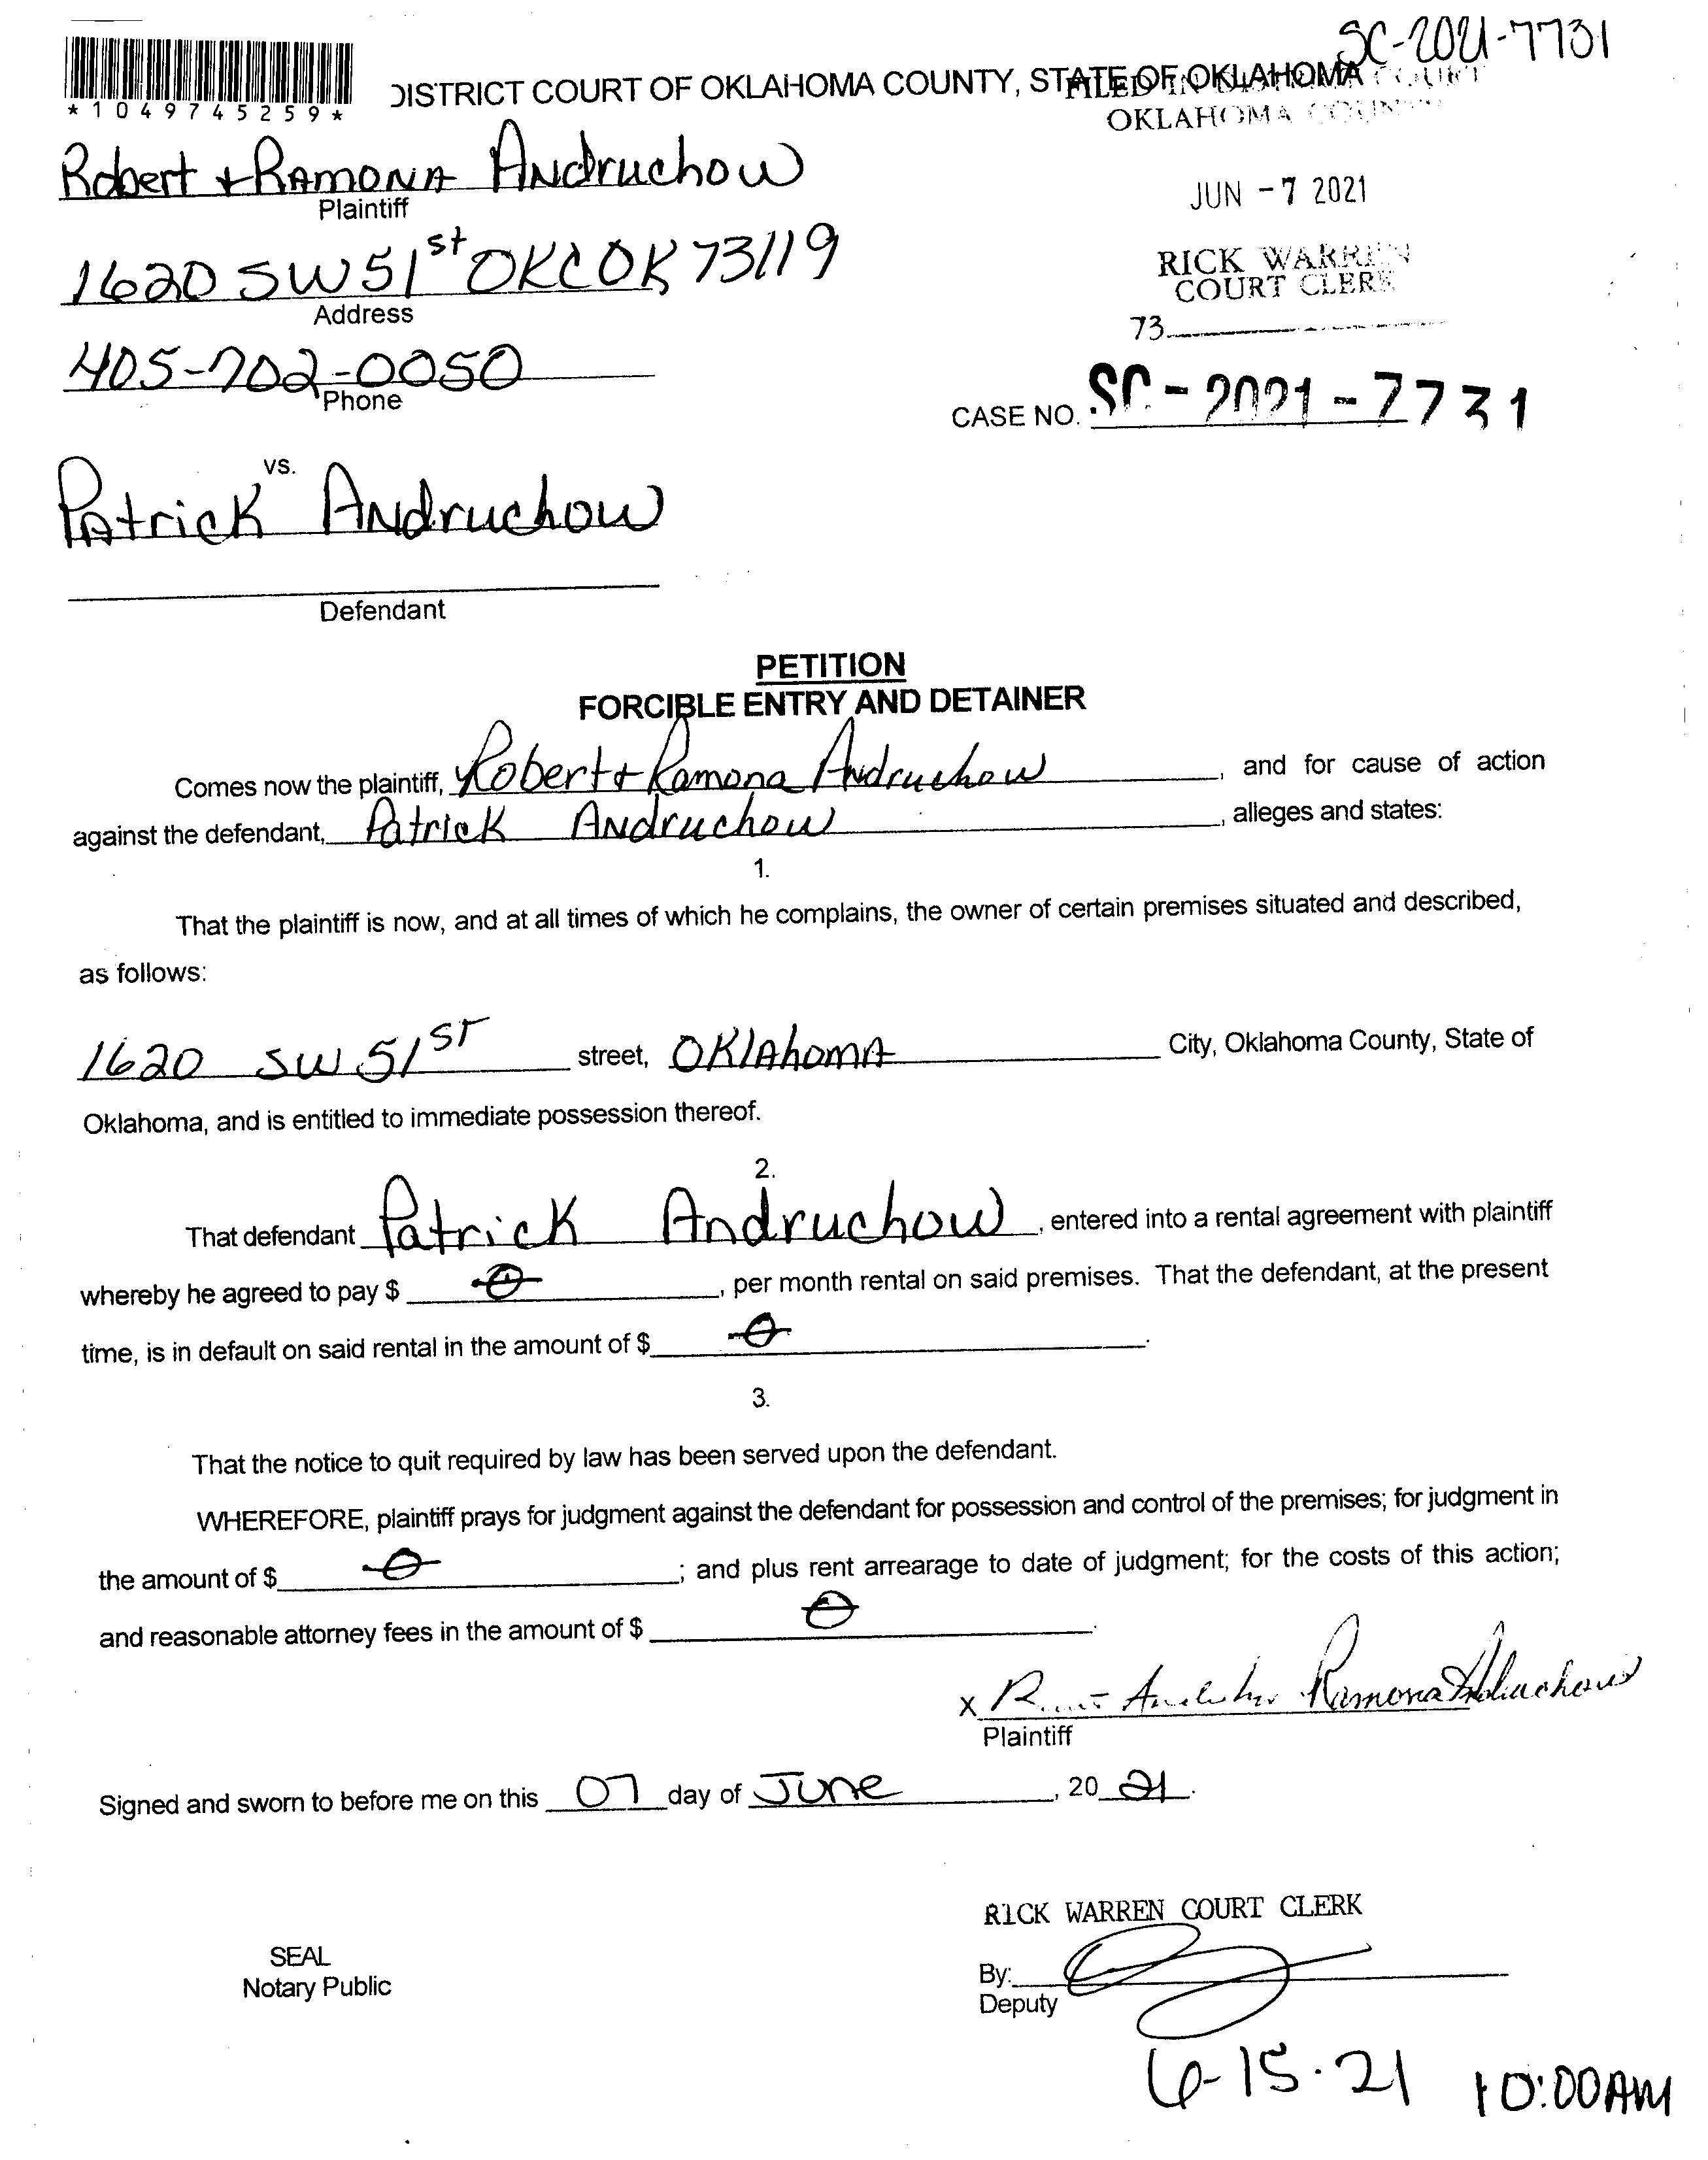 SC-2021-7731
*1049745259*
DISTRICT COURT OF OKLAHOMA COUNTY, STATE OF OKLAHOMA
FILED IN DISTRICT COURT
OKLAHOMA COUNTY
Robert + Ramona Andruchow
Plaintiff
JUN -7 2021
1620 SW 51st OKC OK 73119
Address
RICK WARREN
COURT CLERK
73
405-702-0050
Phone
CASE NO. SC-2021-7731
vs.
Patrick Andruchow
Defendant
PETITION
FORCIBLE ENTRY AND DETAINER
Comes now the plaintiff, Robert + Ramona Andruchow, and for cause of action
against the defendant, Patrick Andruchow, alleges and states:
1.
That the plaintiff is now, and at all times of which he complains, the owner of certain premises situated and described,
as follows:
1620 SW 51ST street, Oklahoma City, Oklahoma County, State of
Oklahoma, and is entitled to immediate possession thereof.
2.
That defendant Patrick Andruchow, entered into a rental agreement with plaintiff
whereby he agreed to pay $ 0, per month rental on said premises. That the defendant, at the present
time, is in default on said rental in the amount of $ 0.
3.
That the notice to quit required by law has been served upon the defendant.
WHEREFORE, plaintiff prays for judgment against the defendant for possession and control of the premises; for judgment in
the amount of $ 0; and plus rent arrearage to date of judgment; for the costs of this action;
and reasonable attorney fees in the amount of $ 0.
x Ramona Andruchow
Plaintiff
Signed and sworn to before me on this 07 day of June, 20 21.
RICK WARREN COURT CLERK
SEAL
Notary Public
By:
Deputy
6-15-21 10:00AM